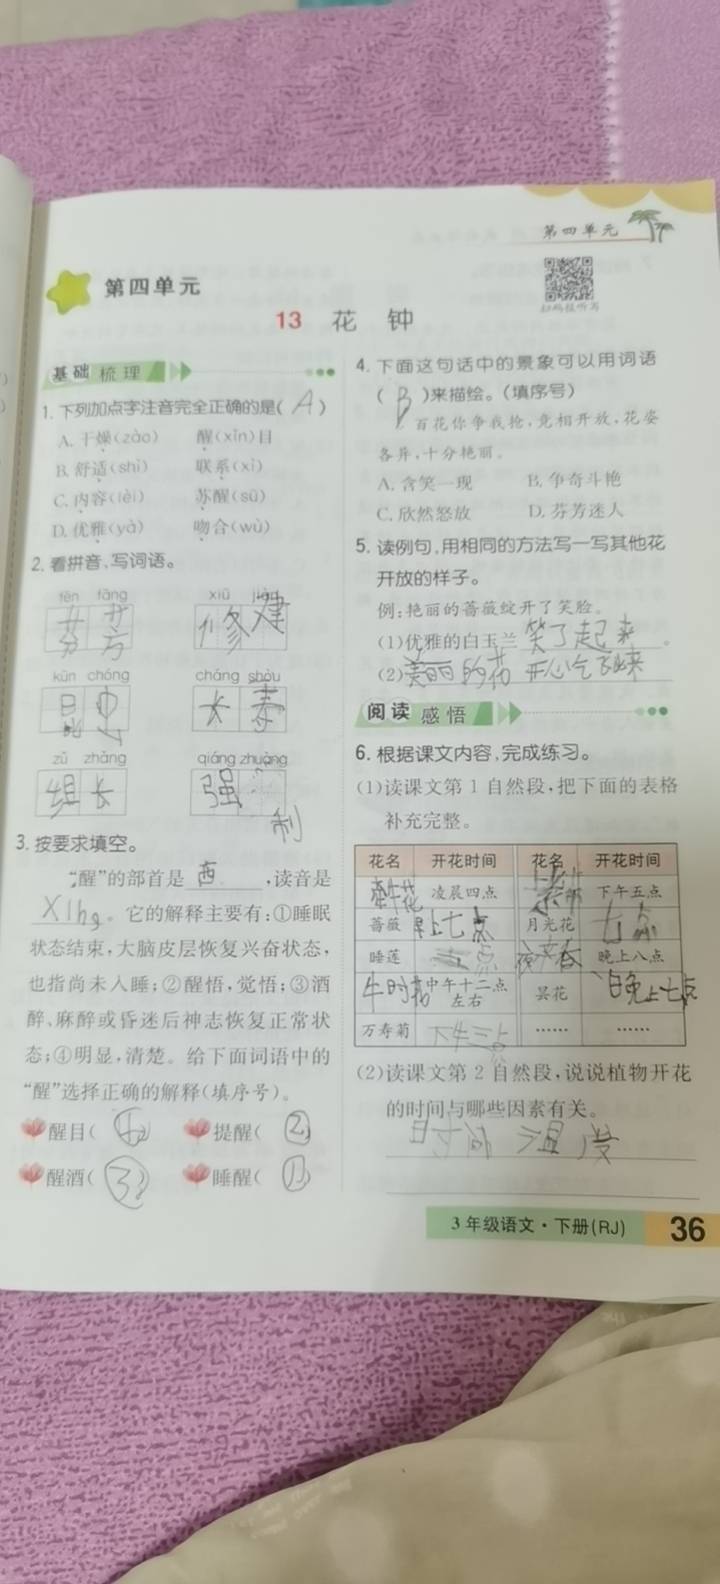 第四单元
第四单元
扫码报听写
13 花 钟
基础 梳理
1. 下列加点字注音完全正确的是( A )
A. 干燥(zào) 醒(xǐn)目
B. 舒适(shì) 联系(xì)
C. 内容(lèi) 苏醒(sū)
D. 优雅(yà) 吻合(wù)
2. 看拼音,写词语。
fēn fāng xiū jiàn
芬 芳 修 建
kūn chóng cháng shòu
昆 虫 长
zǔ zhǎng qiáng zhuàng
组 长 强 制
3. 按要求填空。
“醒”的部首是 酉 ,读音是
XIng 。它的解释主要有:①睡眠
状态结束,大脑皮层恢复兴奋状态,
也指尚未入睡;②醒悟,觉悟;③酒
醉、麻醉或昏迷后神志恢复正常状
态;④明显,清楚。给下面词语中的
“醒”选择正确的解释(填序号)。
醒目( ④ 提醒( ②
醒酒( ③ 睡醒( ①
4. 下面这句话中的景象可以用词语
( B )来描绘。(填序号)
百花你争我抢,竞相开放,花姿
各异,十分艳丽。
A. 含笑一现 B. 争奇斗艳
C. 欣然怒放 D. 芬芳迷人
5. 读例句,用相同的方法写一写其他花
开放的样子。
例:艳丽的蔷薇绽开了笑脸。
(1)优雅的白玉兰 笑了起来 。
(2)美丽的花 开心
阅读 感悟
6. 根据课文内容,完成练习。
(1)读课文第 1 自然段,把下面的表格
补充完整。
花名 开花时间 花名 开花时间
牵牛花 凌晨四点 下午五点
蔷薇 早上七点 月光花 七点
睡莲 五点 晚上八点
午时花 中午十二点左右 昙花 晚上七点
万寿菊 下午三点 …… ……
(2)读课文第 2 自然段,说说植物开花
的时间与哪些因素有关。
时间 温度
3 年级语文·下册(RJ) 36